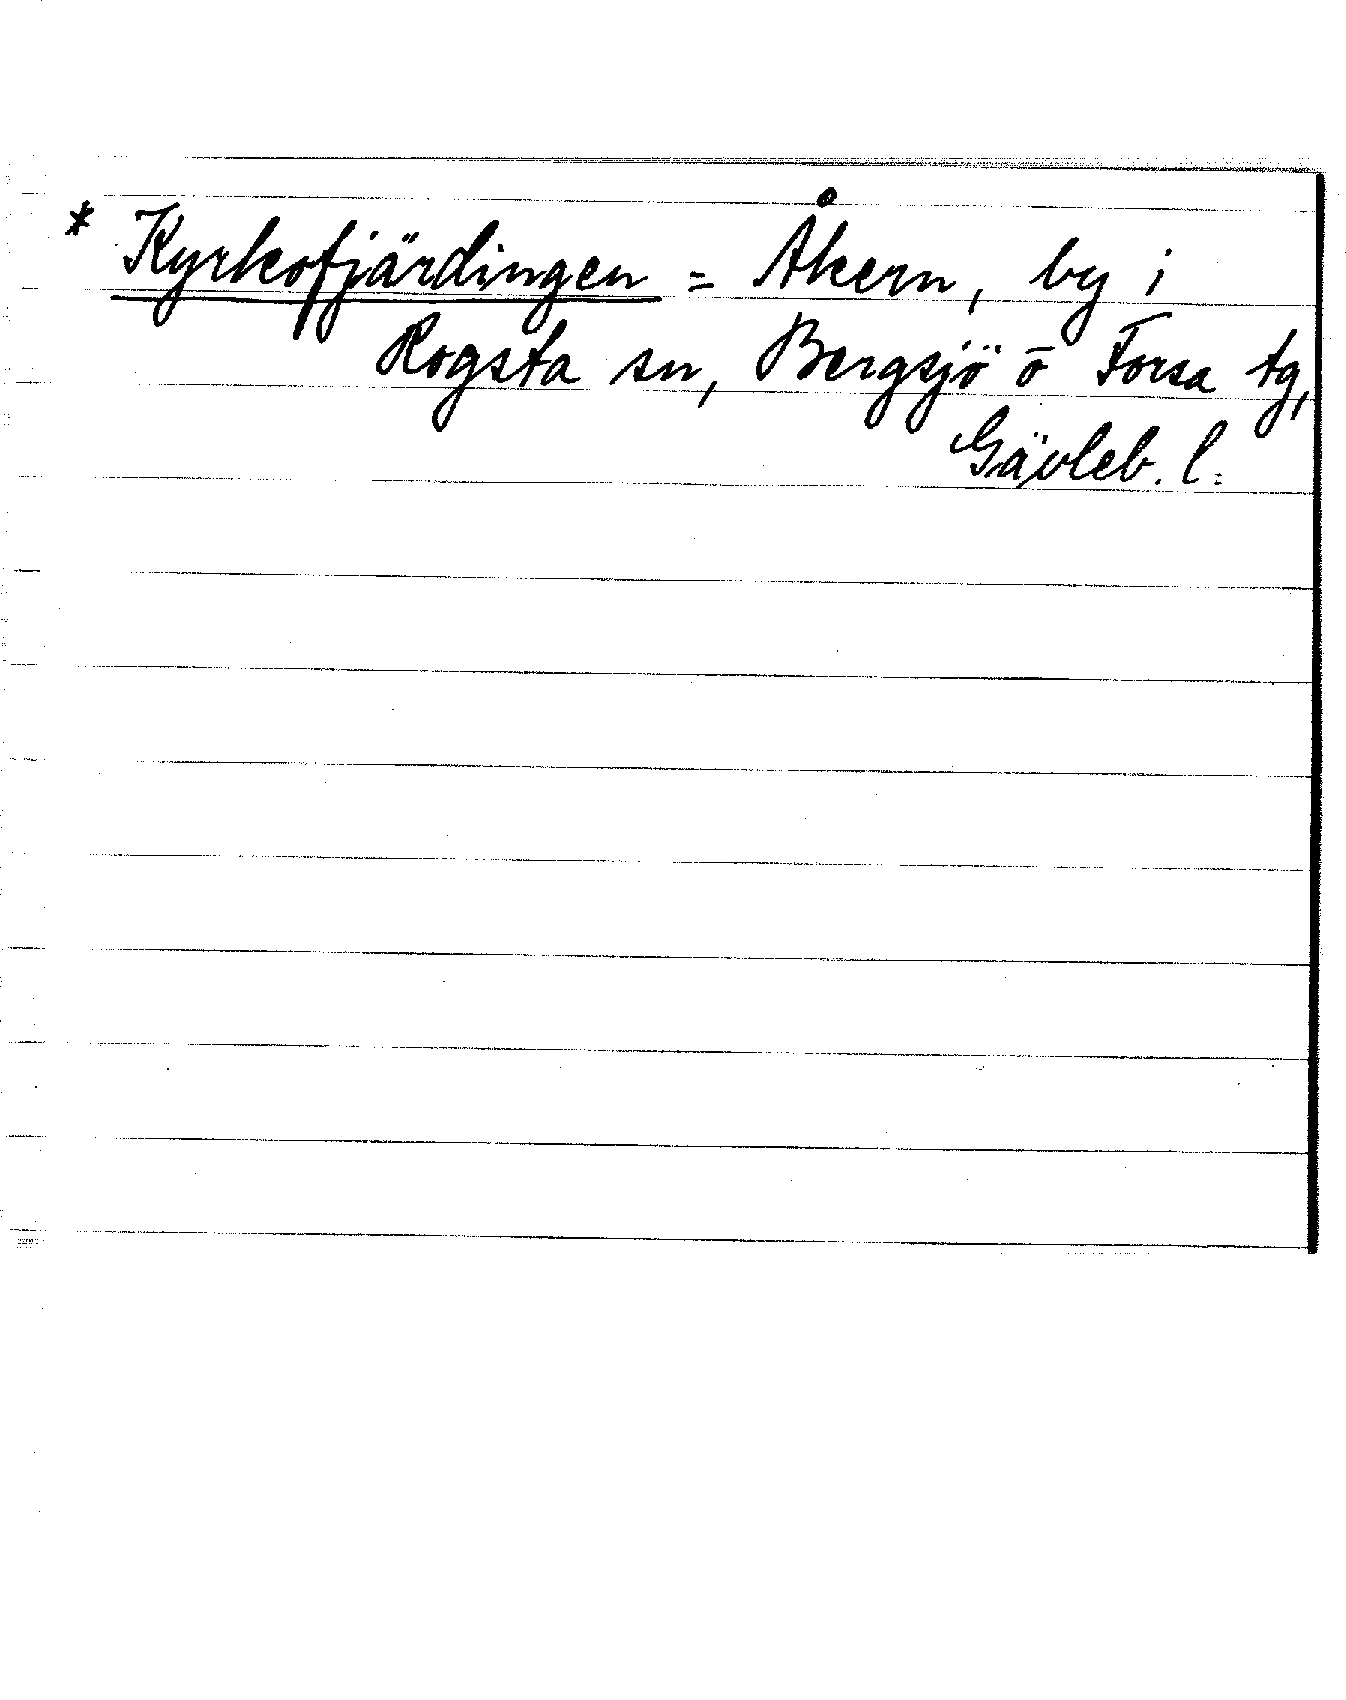 * Kyrkofjärdingen = Åkern, by i
Rogsta sn, Bergsjö o Forsa tg,
Gävleb. l.